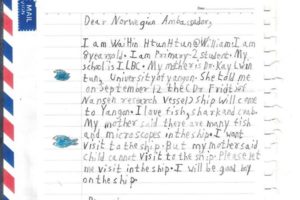 MAIL
Dear Norwegian Ambassador,
I am Wai Hin Htun Htun@William. I am
8 years old. I am Primary-2 student. My
school is ILBC. My mother is Dr. Kay Lwin
tung, University of yangon. She told me
on September 12 the (Dr. Fridtjof
Nansen research Vessel) ship will come
to Yangon. I love fish, shark and crab.
My mother said there are many fish
and microscopes in the ship. I want
visit to the ship. But my mother said
child cannot visit to the ship. Please let
me visit in the ship. I will be good boy
on the ship.